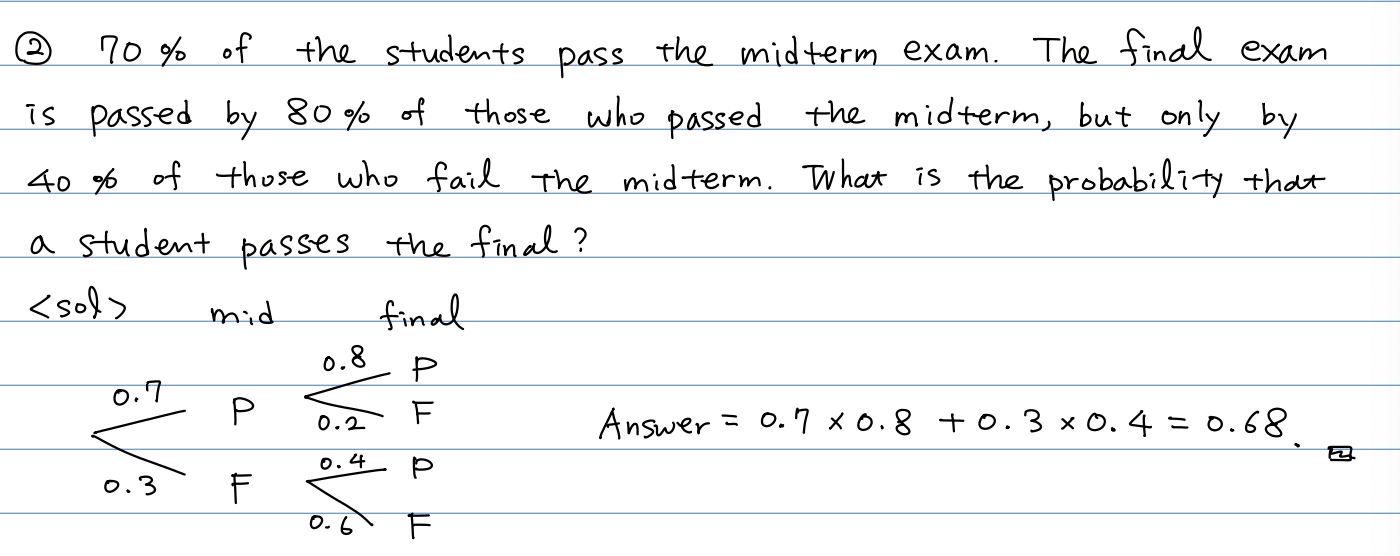 ② 70 % of the students pass the midterm exam. The final exam
is passed by 80 % of those who passed the midterm, but only by
40 % of those who fail the midterm. What is the probability that
a student passes the final ?
<sol> mid final
0.8 P
0.7 P
0.2 F
Answer = 0.7 × 0.8 + 0.3 × 0.4 = 0.68.
0.4 P
0.3 F
0.6 F